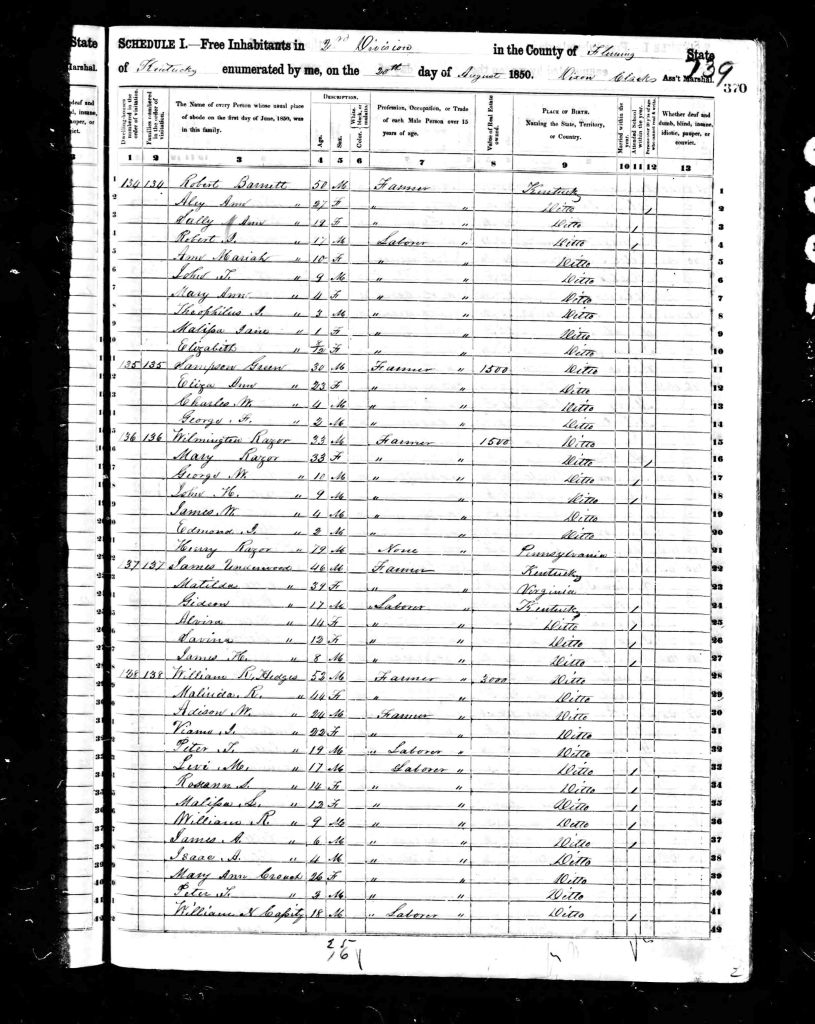 State
Marshal.
SCHEDULE I.—Free Inhabitants in 2nd Division in the County of Fleming State
of Kentucky enumerated by me, on the 20th day of August 1850. Dixon Clark Ass't Marshal.
739
370
Dwelling-houses numbered in the order of visitation.
Families numbered in the order of visitation.
The Name of every Person whose usual place of abode on the first day of June, 1850, was in this family.
DESCRIPTION.
Age.
Sex.
Color, White, black, or mulatto.
Profession, Occupation, or Trade of each Male Person over 15 years of age.
Value of Real Estate owned.
PLACE OF BIRTH. Naming the State, Territory, or Country.
Married within the year.
Attended School within the year.
Whether deaf and dumb, blind, insane, idiotic, pauper, or convict.
1 2 3 4 5 6 7 8 9 10 11 12 13
1 134 134 Robert Barnett 50 M Farmer Kentucky 1
2 Aley Ann " 27 F " " Ditto / 2
3 Sally Ann " 19 F " " Ditto / 3
4 Robert I. " 17 M Laborer " Ditto / 4
5 Ann Mariah " 10 F " " Ditto 5
6 John F. " 9 M " " Ditto 6
7 Mary Ann " 4 F " " Ditto 7
8 Theophilus I. " 3 M " " Ditto 8
9 Malissa Jane " 1 F " " Ditto 9
10 Elizabeth " /12 F " " Ditto 10
11 135 135 Sampson Green 30 M Farmer " 1500 Ditto 11
12 Eliza Ann " 23 F " " Ditto 12
13 Charles W. " 4 M " " Ditto 13
14 George F. " 2 M " " Ditto 14
15 136 136 Wilmington Razor 33 M Farmer 1500 Ditto 15
16 Mary Razor 33 F " " Ditto / 16
17 George W. " 10 M " " Ditto / 17
18 John H. " 9 M " " Ditto / 18
19 James W. " 4 M " " Ditto 19
20 Edmond I. " 2 M " " Ditto 20
21 Henry Razor " 79 M None " Pennsylvania 21
22 137 137 James Underwood 46 M Farmer Kentucky 22
23 Matilda " 39 F " " Virginia 23
24 Gideon " 17 M Laborer " Kentucky / 24
25 Alvira " 14 F " " Ditto / 25
26 Lavina " 12 F " " Ditto / 26
27 James H. " 8 M " " Ditto / 27
28 138 138 William R. Hedges 52 M Farmer " 3000 Ditto 28
29 Malinda R. " 44 F " " Ditto 29
30 Adison W. " 24 M Farmer " Ditto 30
31 I. " 22 F " " Ditto 31
32 Peter T. " 19 M " Laborer " Ditto 32
33 Levi M. " 17 M Laborer " Ditto / 33
34 Roseann S. " 14 F " " Ditto / 34
35 Malissa L. " 12 F " " Ditto / 35
36 William R. " 9 M " " Ditto / 36
37 James A. " 6 M " " Ditto / 37
38 Isaac A. " 4 M " " Ditto 38
39 Mary Ann Crouch 26 F " " Ditto 39
40 Peter F. " 3 M " " Ditto 40
41 William N Cassity 18 M " Laborer " Ditto / 41
42
25
16